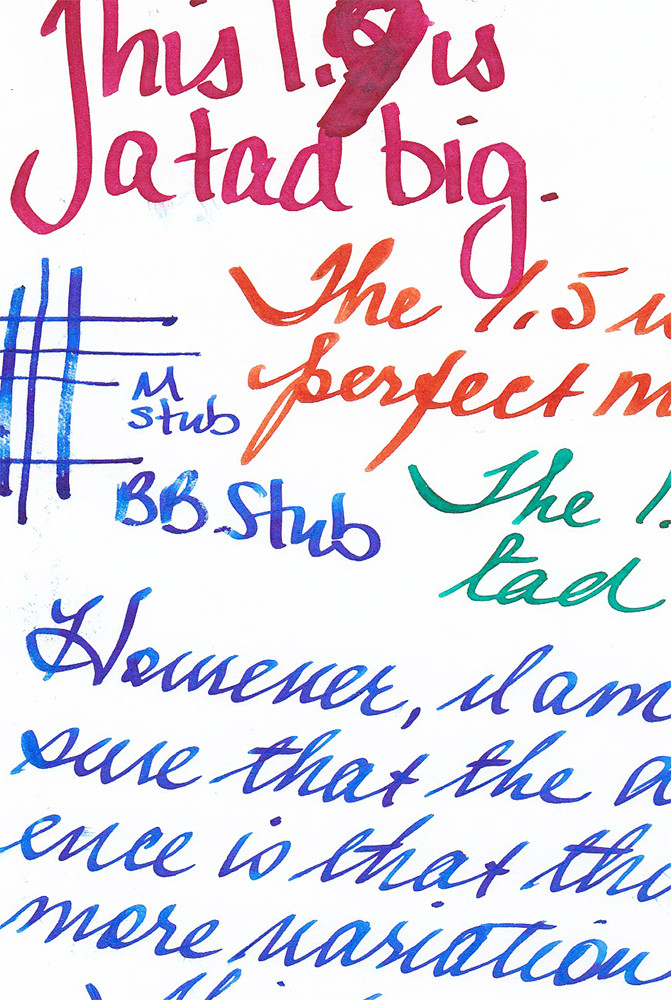 This 1.9 is
a tad big.
The 1.5
perfect
M
stub
BB Stub
The 1.
tad
However, I am
sure that the
ence is that
more variation